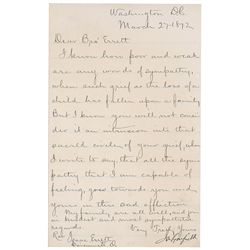 Washington D.C.
March 27-1872
Dear Bro Errett
I know how poor and
weak are any words of sympathy,
when such grief as the loss of a
child has fallen upon a family,
But I know you will not con-
sider it an intrusion into that
sacred circle of your grief, when
I write to say, that all the sym-
pathy that I am capable of
feeling, goes towards you and
yours in this sad affliction
My family are all well, and join
in kindest and most
regards Very Truly Yours
Rev J A Garfield
Isaac Errett
Cincinnati O.